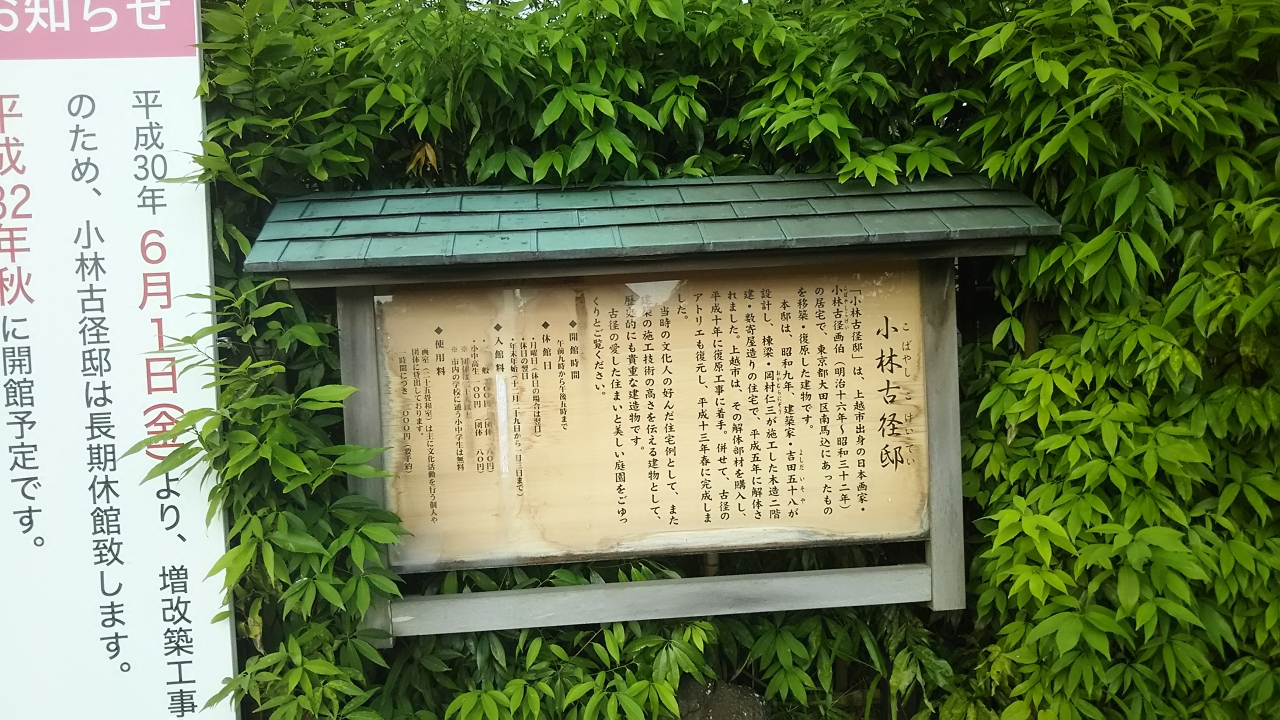 小林古径邸
こばやしこけいてい
「小林古径邸」は、上越市出身の日本画家・
小林古径画伯(明治十六年～昭和三十二年)
の居宅で、東京都大田区南馬込にあったもの
を移築・復原した建物です。
本邸は、昭和九年、建築家・吉田五十八が
設計し、棟梁・岡村仁三が施工した木造二階
建・数寄屋造りの住宅で、平成五年に解体さ
れました。上越市は、その解体部材を購入し、
平成十年に復原工事に着手。併せて、古径の
アトリエも復元し、平成十三年春に完成しま
した。
当時の文化人の好んだ住宅例として、また
建築の施工技術の高さを伝える建物として、
歴史的にも貴重な建造物です。
古径の愛した住まいと美しい庭園をごゆっ
くりとご覧ください。
◆開館時間
午前九時から午後五時まで
◆休館日
・月曜日(休日の場合は翌日)
・休日の翌日
・年末年始(十二月二十九日から一月三日まで)
◆入館料
一般
小中学生
※市内の学校に通う小中学生は無料
◆使用料
画室(二十五畳和室)は主に文化活動を行う個人や
団体に貸出しております。
一時間につき
お知らせ
平成30年6月1日(金)より、増改築工事
のため、小林古径邸は長期休館致します。
平成32年秋に開館予定です。